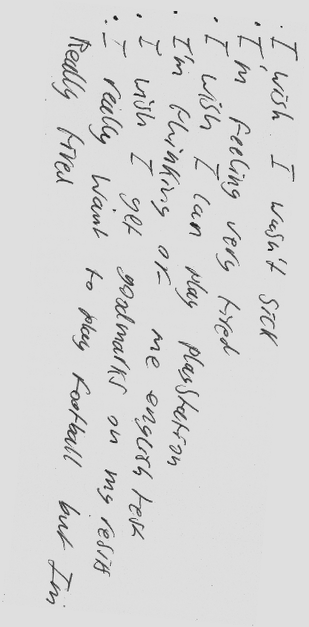 • I wish I wasn't sick
• I'm feeling very tired
• I wish I can play playstation
• I'm thinking of me english test
• I wish I get goodmarks on my resits
• I really want to play football but I'm
Really tired